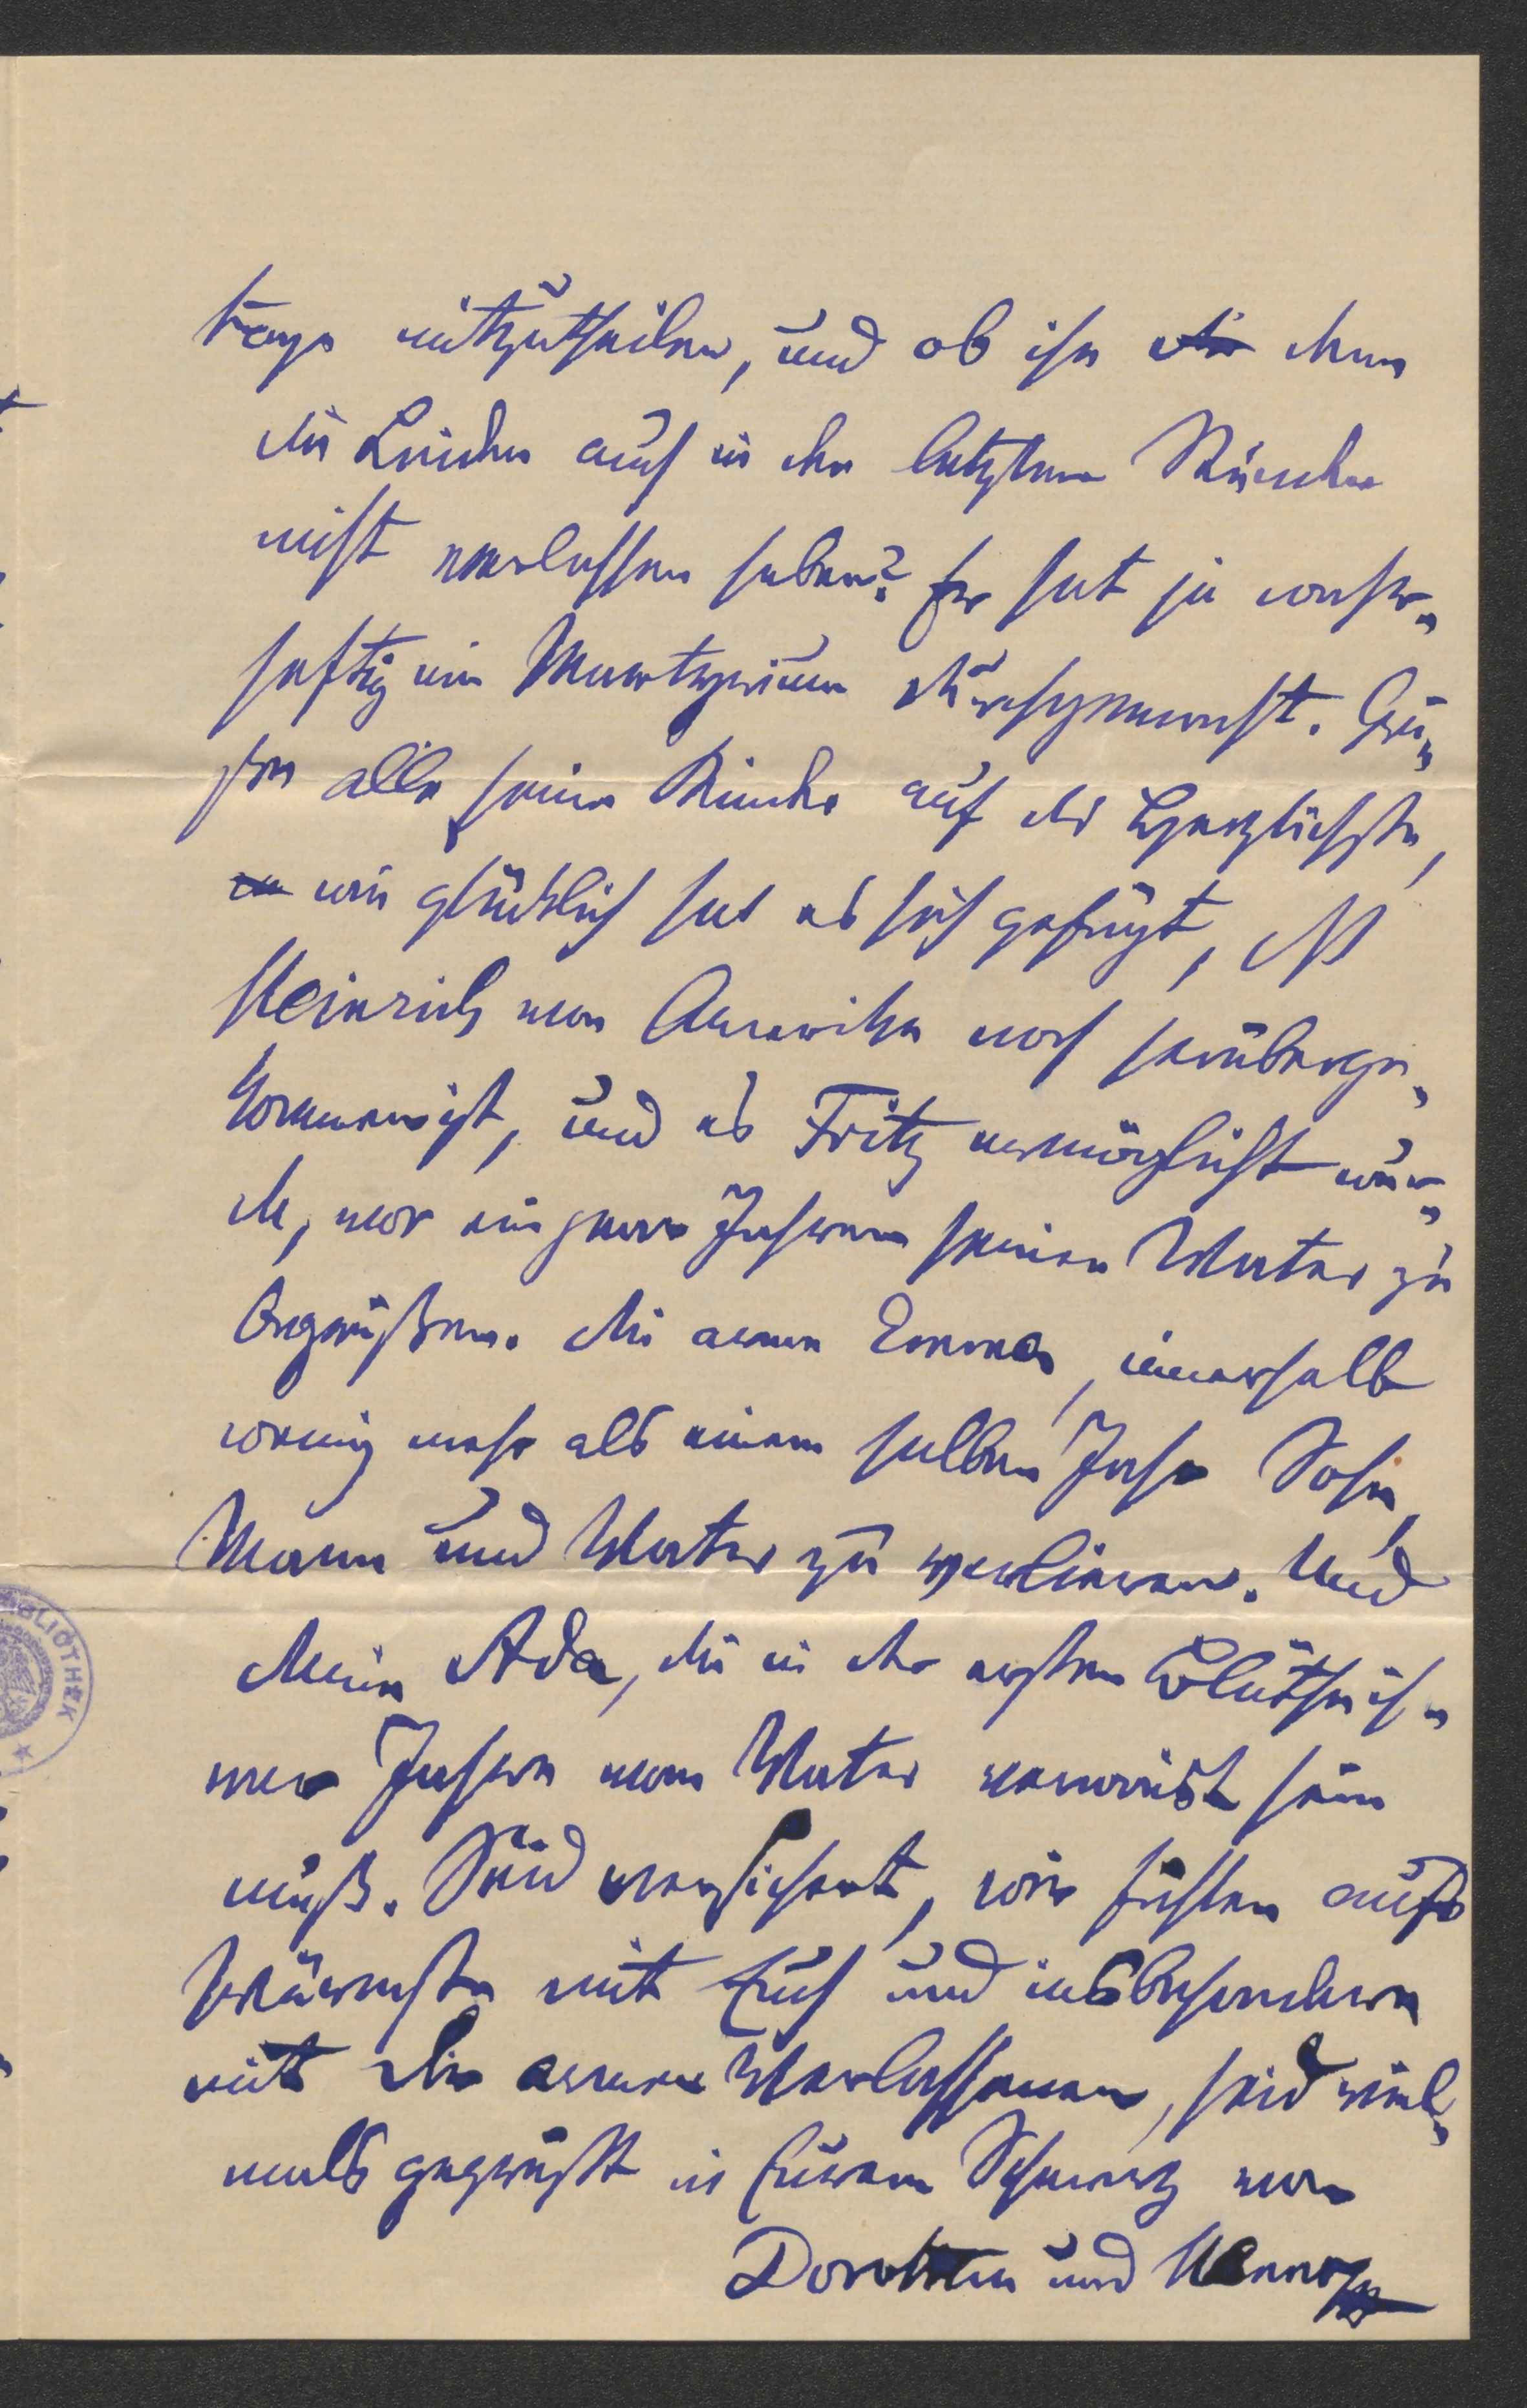 tage mitzutheilen, und ob ihn die denn
die Leiden auch in den letzten Stunden
nicht verlassen haben? Er hat ja wahr„
haftig ein Martyrium durchgemacht. Grü„
ßen alle seine Kinder auf das Herzlichste,
wie glücklich hat es sich gefügt, daß
Heinrich von Amerika noch herüberge„
kommen ist, und es Fritz ermöglicht wur„
de, vor ein paar Jahren seinen Vater zu
begrüßen. Die arme Emma, innerhalb
wenig mehr als einem halben Jahr Sohn,
Mann und Vater zu verlieren. Und
Deine Ada, die in der ersten Blüthe ih„
rer Jahre vom Vater verwaist sein
muß. Seid versichert, wir fühlen aufs
Wärmste mit Euch und insbesondere
mit den armen Verlassenen, seid viel„
mals gegrüßt in Eurem Schmerz von
Dorothea und
BIBLIOTHEK